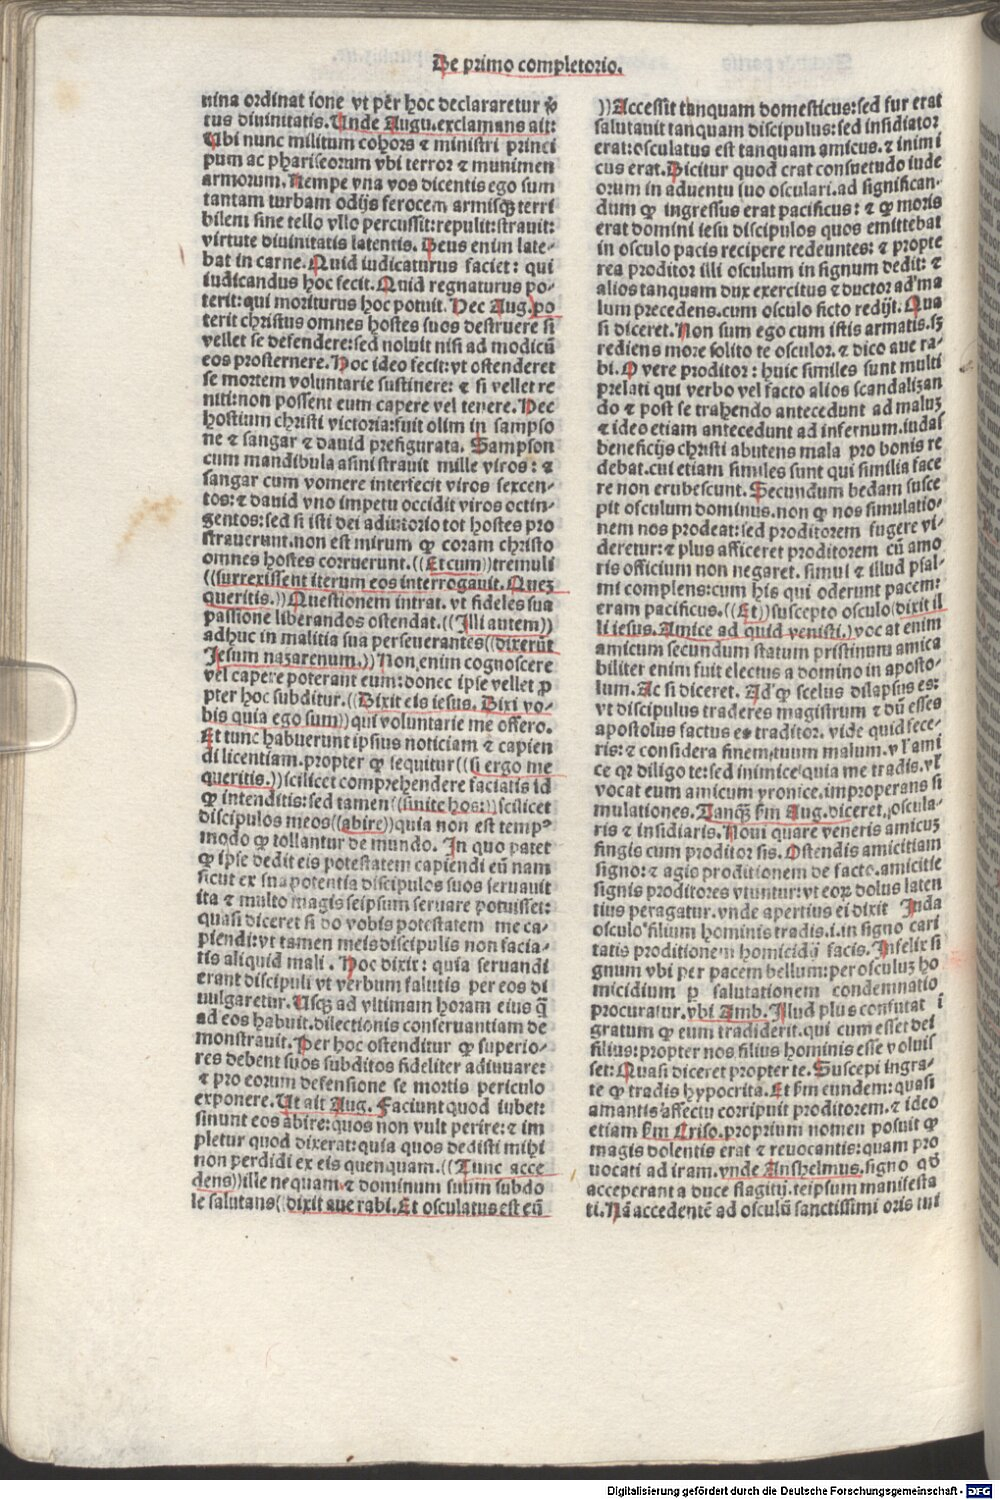 De primo completorio.
nina ordinat ione vt per hoc declararetur
tus diuinitatis. Unde Augu. exclamans ait:
Ubi nunc militum cohors ⁊ ministri princi
pum ac phariseorum vbi terror ⁊ munimen
armorum. Nempe vna vos dicentis ego sum
tantam turbam odijs ferocem armisqꝫ terri
bilem sine tello vllo percussit: repulit: strauit:
virtute diuinitatis latentis. Deus enim late⸗
bat in carne. Quid iudicaturus faciet: qui
iudicandus hoc fecit. Quid regnaturus po⸗
terit: qui moriturus hoc potuit. Hec Aug. po
terit christus omnes hostes suos destruere si
vellet se defendere: sed noluit nisi ad modicū
eos prosternere. Hoc ideo fecit: vt ostenderet
se mortem voluntarie sustinere: ⁊ si vellet re
niti: non possent eum capere vel tenere. Hec
hostium christi victoria: fuit olim in sampso
ne ⁊ sangar ⁊ dauid prefigurata. Sampson
cum mandibula asini strauit mille viros: ⁊
sangar cum vomere intersecit viros sexcen⸗
tos: ⁊ dauid vno impetu occidit viros octin⸗
gentos: sed si isti dei adiutorio tot hostes pro
strauerunt. non est mirum ꝙ coram christo
omnes hostes corruerunt. ((Et cum)) tremuli
((surrexissent iterum eos interrogauit. Queꝫ
queritis.)) Questionem intrat. vt fideles sua
passione liberandos ostendat. ((Illi autem))
adhuc in malitia sua perseuerantes ((dixerūt
Jesum nazarenum.)) Non enim cognoscere
vel capere poterant eum: donec ipse vellet ꝓ
pter hoc subditur. ((Dixit eis iesus. Dixi vo⸗
bis quia ego sum)) qui voluntarie me offero.
Et tunc habuerunt ipsius noticiam ⁊ capien
di licentiam. propter ꝙ sequitur ((si ergo me
queritis.)) scilicet comprehendere faciatis id
ꝙ intenditis: sed tamen ((sinite hos:)) scilicet
discipulos meos ((abire)) quia non est tempꝰ
modo ꝙ tollantur de mundo. In quo patet
ꝙ ipse dedit eis potestatem capiendi eū nam
sicut ex sua potentia discipulos suos seruauit
ita ⁊ multo magis seipsum seruare potuisset:
quasi diceret si do vobis potestatem me ca⸗
piendi: vt tamen meis discipulis non facia⸗
tis aliquid mali. Hoc dixit: quia seruandi
erant discipuli vt verbum salutis per eos di
uulgaretur. Usqꝫ ad vltimam horam eius q̄
ad eos habuit. dilectionis conseruantiam de
monstrauit. Per hoc ostenditur ꝙ superio⸗
res debent suos subditos fideliter adiuuare:
⁊ pro eorum defensione se mortis periculo
exponere. Ut ait Aug. Faciunt quod iubet:
sinunt eos abire: quos non vult perire: ⁊ im
pletur quod dixerat: quia quos dedisti mihi
non perdidi ex eis quenquam. ((Tunc acce
dens)) ille nequam ⁊ dominum suum subdo
le salutans ((dixit aue rabi. Et osculatus est eū
)) Accessit tanquam domesticus: sed fur erat
salutauit tanquam discipulus: sed insidiator
erat: osculatus est tanquam amicus. ⁊ inimi
cus erat. Dicitur quod erat consuetudo iude
orum in aduentu suo osculari. ad significan⸗
dum ꝙ ingressus erat pacificus: ⁊ ꝙ moris
erat domini iesu discipulos quos emittebat
in osculo pacis recipere redeuntes: ⁊ propte
rea proditor illi osculum in signum dedit: ⁊
alios tanquam dux exercitus ⁊ ductor ad ma
lum precedens. cum osculo ficto redijt. Qua
si diceret. Non sum ego cum istis armatis. sꝫ
rediens more solito te osculor. ⁊ dico aue ra⸗
bi. O vere proditor: huic similes sunt multi
prelati qui verbo vel facto alios scandalizan
do ⁊ post se trahendo antecedunt ad maluꝫ
⁊ ideo etiam antecedunt ad infernum. iudas
beneficijs christi abutens mala pro bonis re
debat. cui etiam similes sunt qui similia face
re non erubescunt. Secundum bedam susce
pit osculum dominus. non ꝙ nos simulatio⸗
nem nos prodeat: sed proditorem fugere vi⸗
deretur: ⁊ plus afficeret proditorem cū amo
ris officium non negaret. simul ⁊ illud psal⸗
mi complens: cum his qui oderunt pacem:
eram pacificus. ((Et)) suscepto osculo (dixit il
li iesus. Amice ad quid venisti.) vocat enim
amicum secundum statum pristinum amica
biliter enim fuit electus a domino in aposto⸗
lum. Ac si diceret. Ad ꝙ scelus dilapsus es:
vt discipulus traderes magistrum ⁊ dū esses
apostolus factus es traditor. vide quid fece⸗
ris: ⁊ considera finem tuum malum. vl ami
ce qꝛ diligo te: sed inimice quia me tradis. vl
vocat eum amicum yronice. improperans si
mulationes. Tanqꝫ fm Aug. diceret, oscula⸗
ris ⁊ insidiaris. Noui quare veneris amicuꝫ
fingis cum proditor sis. Ostendis amicitiam
signo: ⁊ agis proditionem de facto. amicitie
signis proditores vtuntur: vt eoꝝ dolus laten
tius peragatur. vnde apertius ei dixit Juda
osculo filium hominis tradis. i. in signo cari
tatis proditionem homicidij facis. Infelix si
gnum vbi per pacem bellum: per osculuꝫ ho
micidium ꝑ salutationem condemnatio
procuratur. vbi Amb. Illud plus confutat ī
gratum ꝙ eum tradiderit. qui cum esset dei
filius: propter nos filius hominis esse voluis
set: Quasi diceret propter te. Suscepi ingra⸗
te ꝙ tradis hypocrita. Et fm eundem: quasi
amantis affectu corripuit proditorem. ⁊ ideo
etiam fm Criso. proprium nomen posuit ꝙ
magis dolentis erat ⁊ reuocantis: quam pro
uocati ad iram. vnde Anshelmus. signo qd̄
acceperant a duce flagitij. teipsum manifesta
ti. Nā accedentē ad osculū sanctissimi oris tui
Digitalisierung gefördert durch die Deutsche Forschungsgemeinschaft - DFG